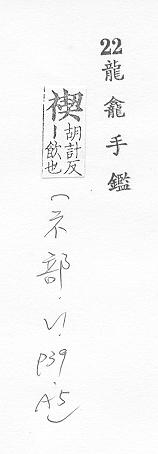 22 龍龕手鑑
禊 胡計反
ー飲也
(示部.V1.p39.A5)